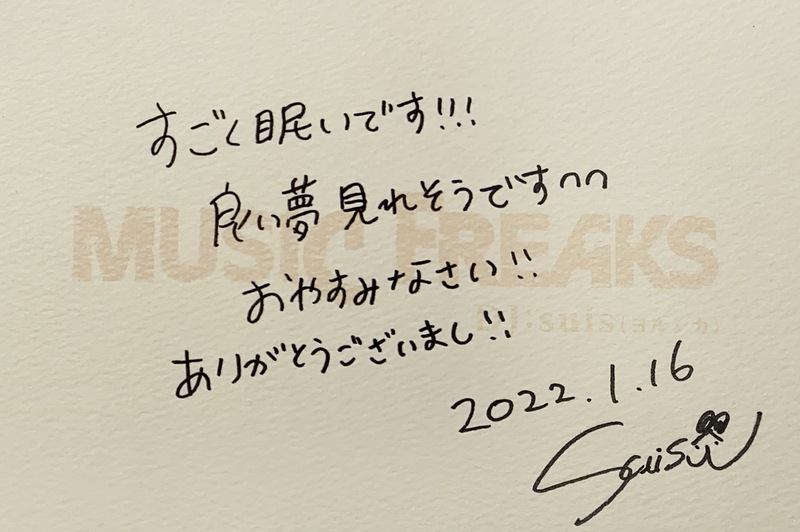 すごく眠いです!!!
良い夢見れそうですnn
MUSIC FREAKS
おやすみなさい!!
DJ:suis(ヨルシカ)
ありがとうございまし!!
2022.1.16
suis